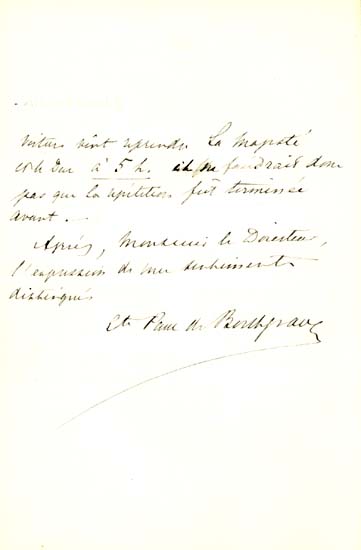 voiture vînt reprendre Sa Majesté
et le Duc à 5 h. il ne faudrait donc
pas que la répétition fût terminée
avant. —
Agréez, Monsieur le Directeur,
l'expression de mes sentiments
distingués
Cte Paul de Borchgrave